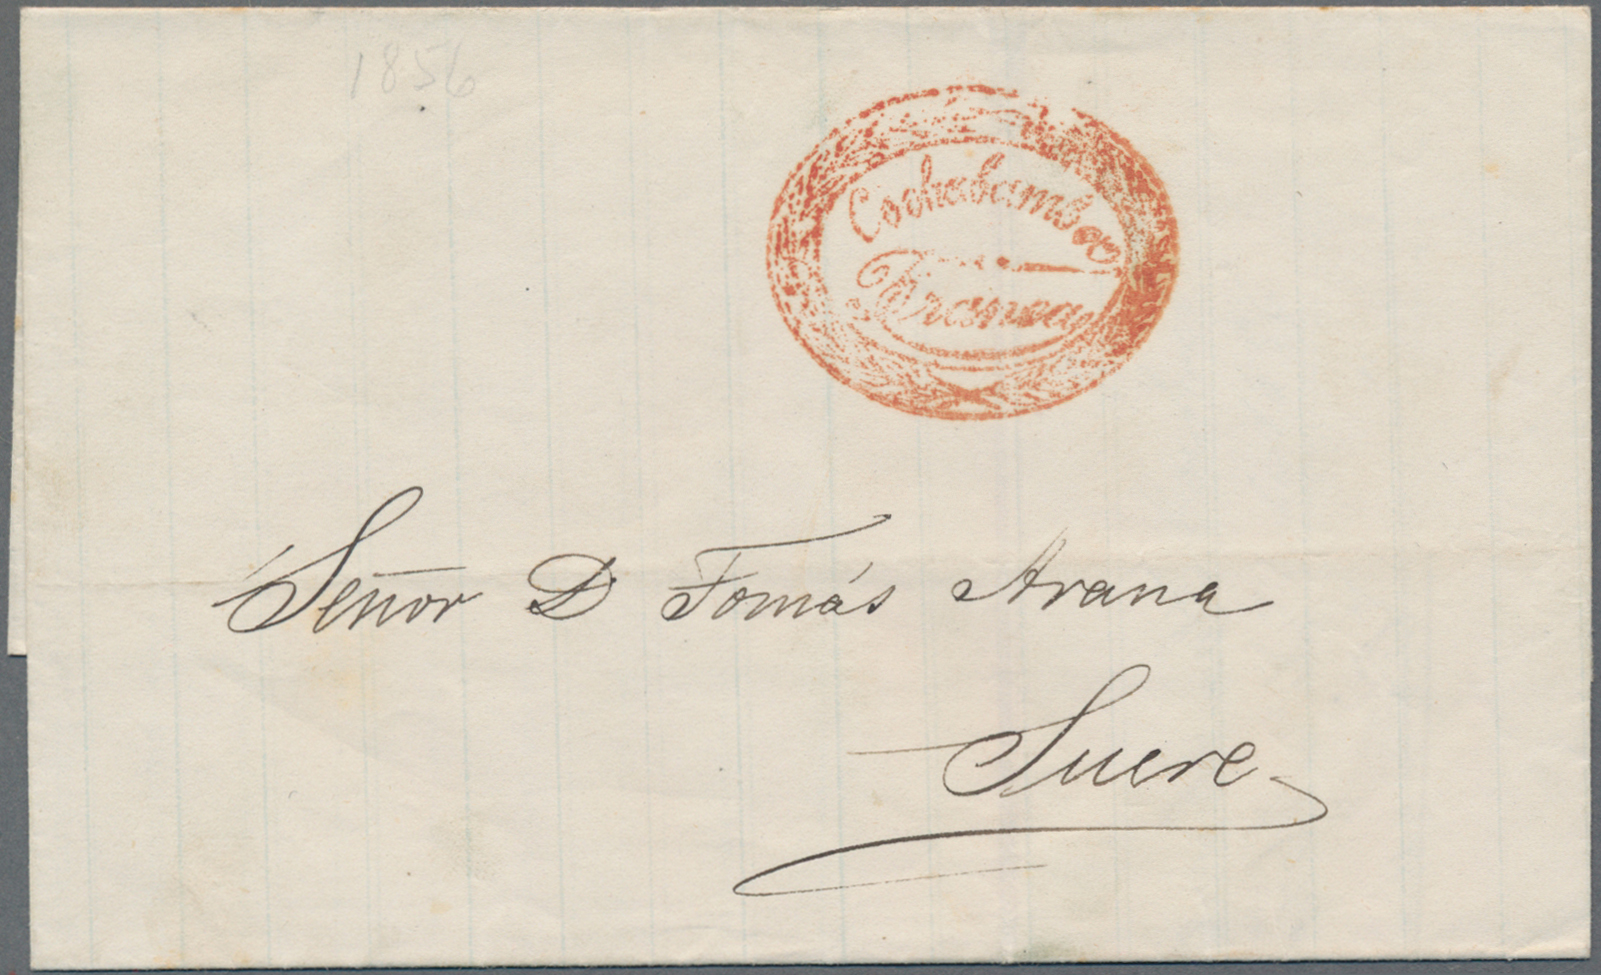 1856
Cochabamba
Franca
Señor D Tomás Arana
Sucre